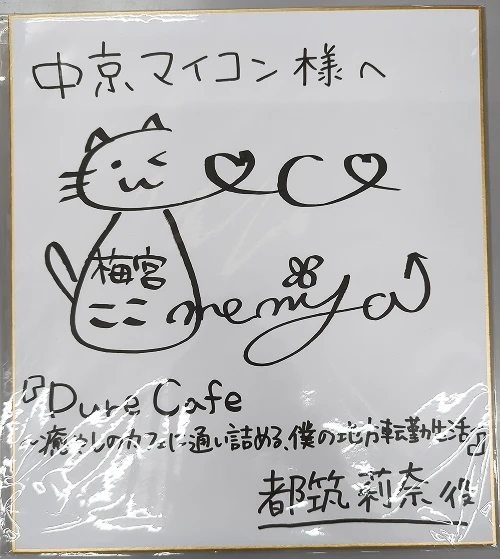 中京マイコン様へ
coco
梅宮
ここ
memiya
『Dure Cafe
～癒やしのカフェに通い詰める、僕の地方転勤生活～』
都筑莉奈役